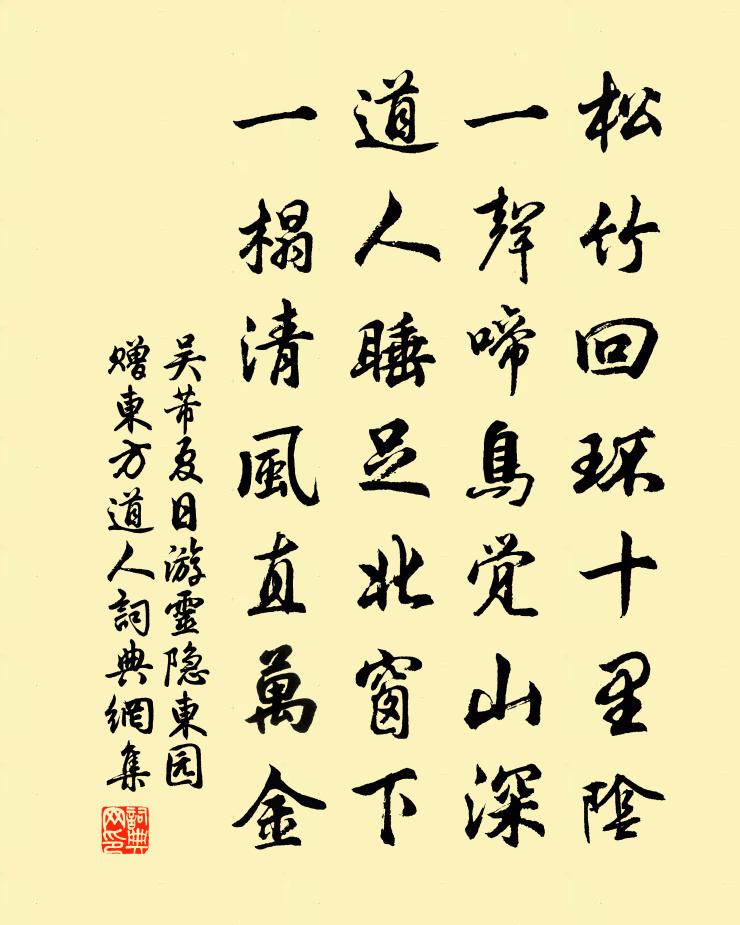 松竹回环十里陰
一聲啼鳥觉山深
道人睡足北窗下
一榻清風直萬金
吴芾夏日游靈隐東园
赠東方道人詞典網集
詞典
网印